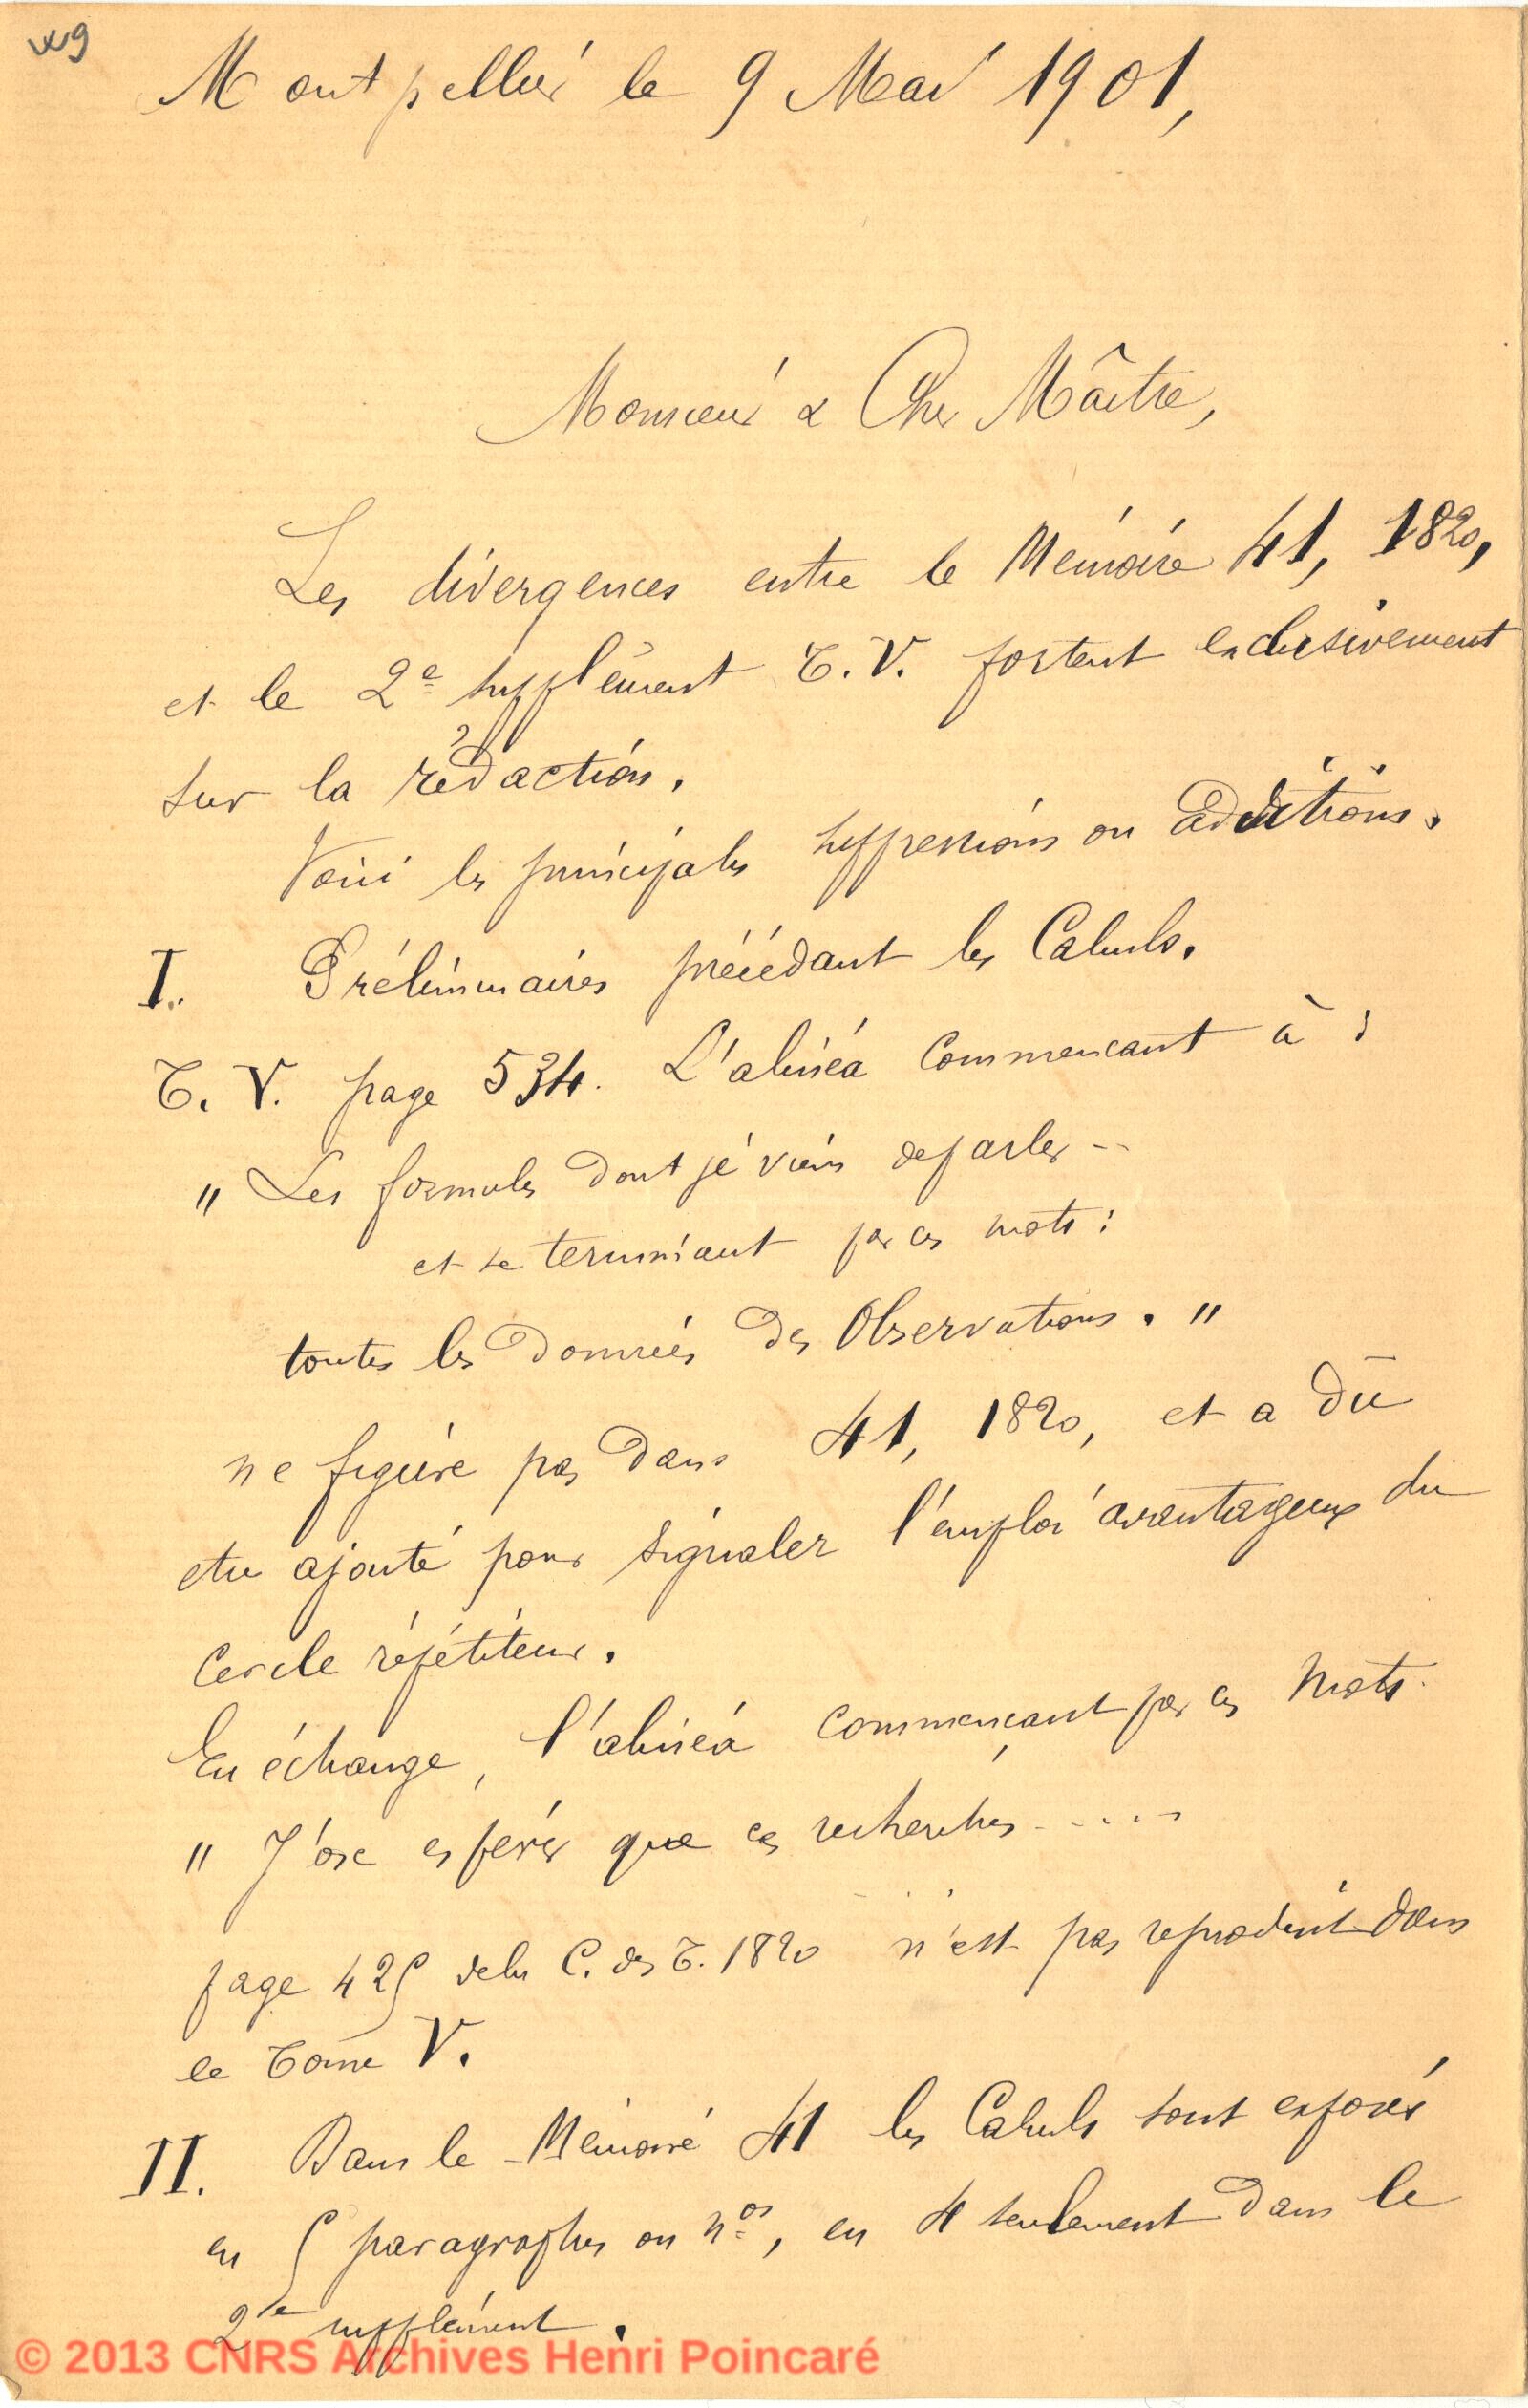 W9
Montpellier le 9 Mai 1901,
Monsieur & Cher Maître,
Les divergences entre le Mémoire 41, 1820,
et le 2e supplément T. V. portent exclusivement
sur la rédaction.
Voici les principales suppressions ou additions.
I. Préliminaires précédant les Calculs.
T. V. page 534. L'alinéa commencant à :
" Les formules dont je viens de parler --
et se terminant par ces mots :
toutes les données des Observations. "
ne figure pas dans 41, 1820, et a dû
etre ajouté pour signaler l'emploi avantageux du
Cercle répétiteur.
En échange, l'alinéa commençant par ces mots
" J'ose espérer que ces recherches .....
page 425 de la C. des T. 1820 n'est pas reproduit dans
le Tome V.
II. Dans le Mémoire 41 les Calculs sont exposés
en 5 paragraphes ou nos, en 4 seulement dans le
2e supplément.
© 2013 CNRS Archives Henri Poincaré